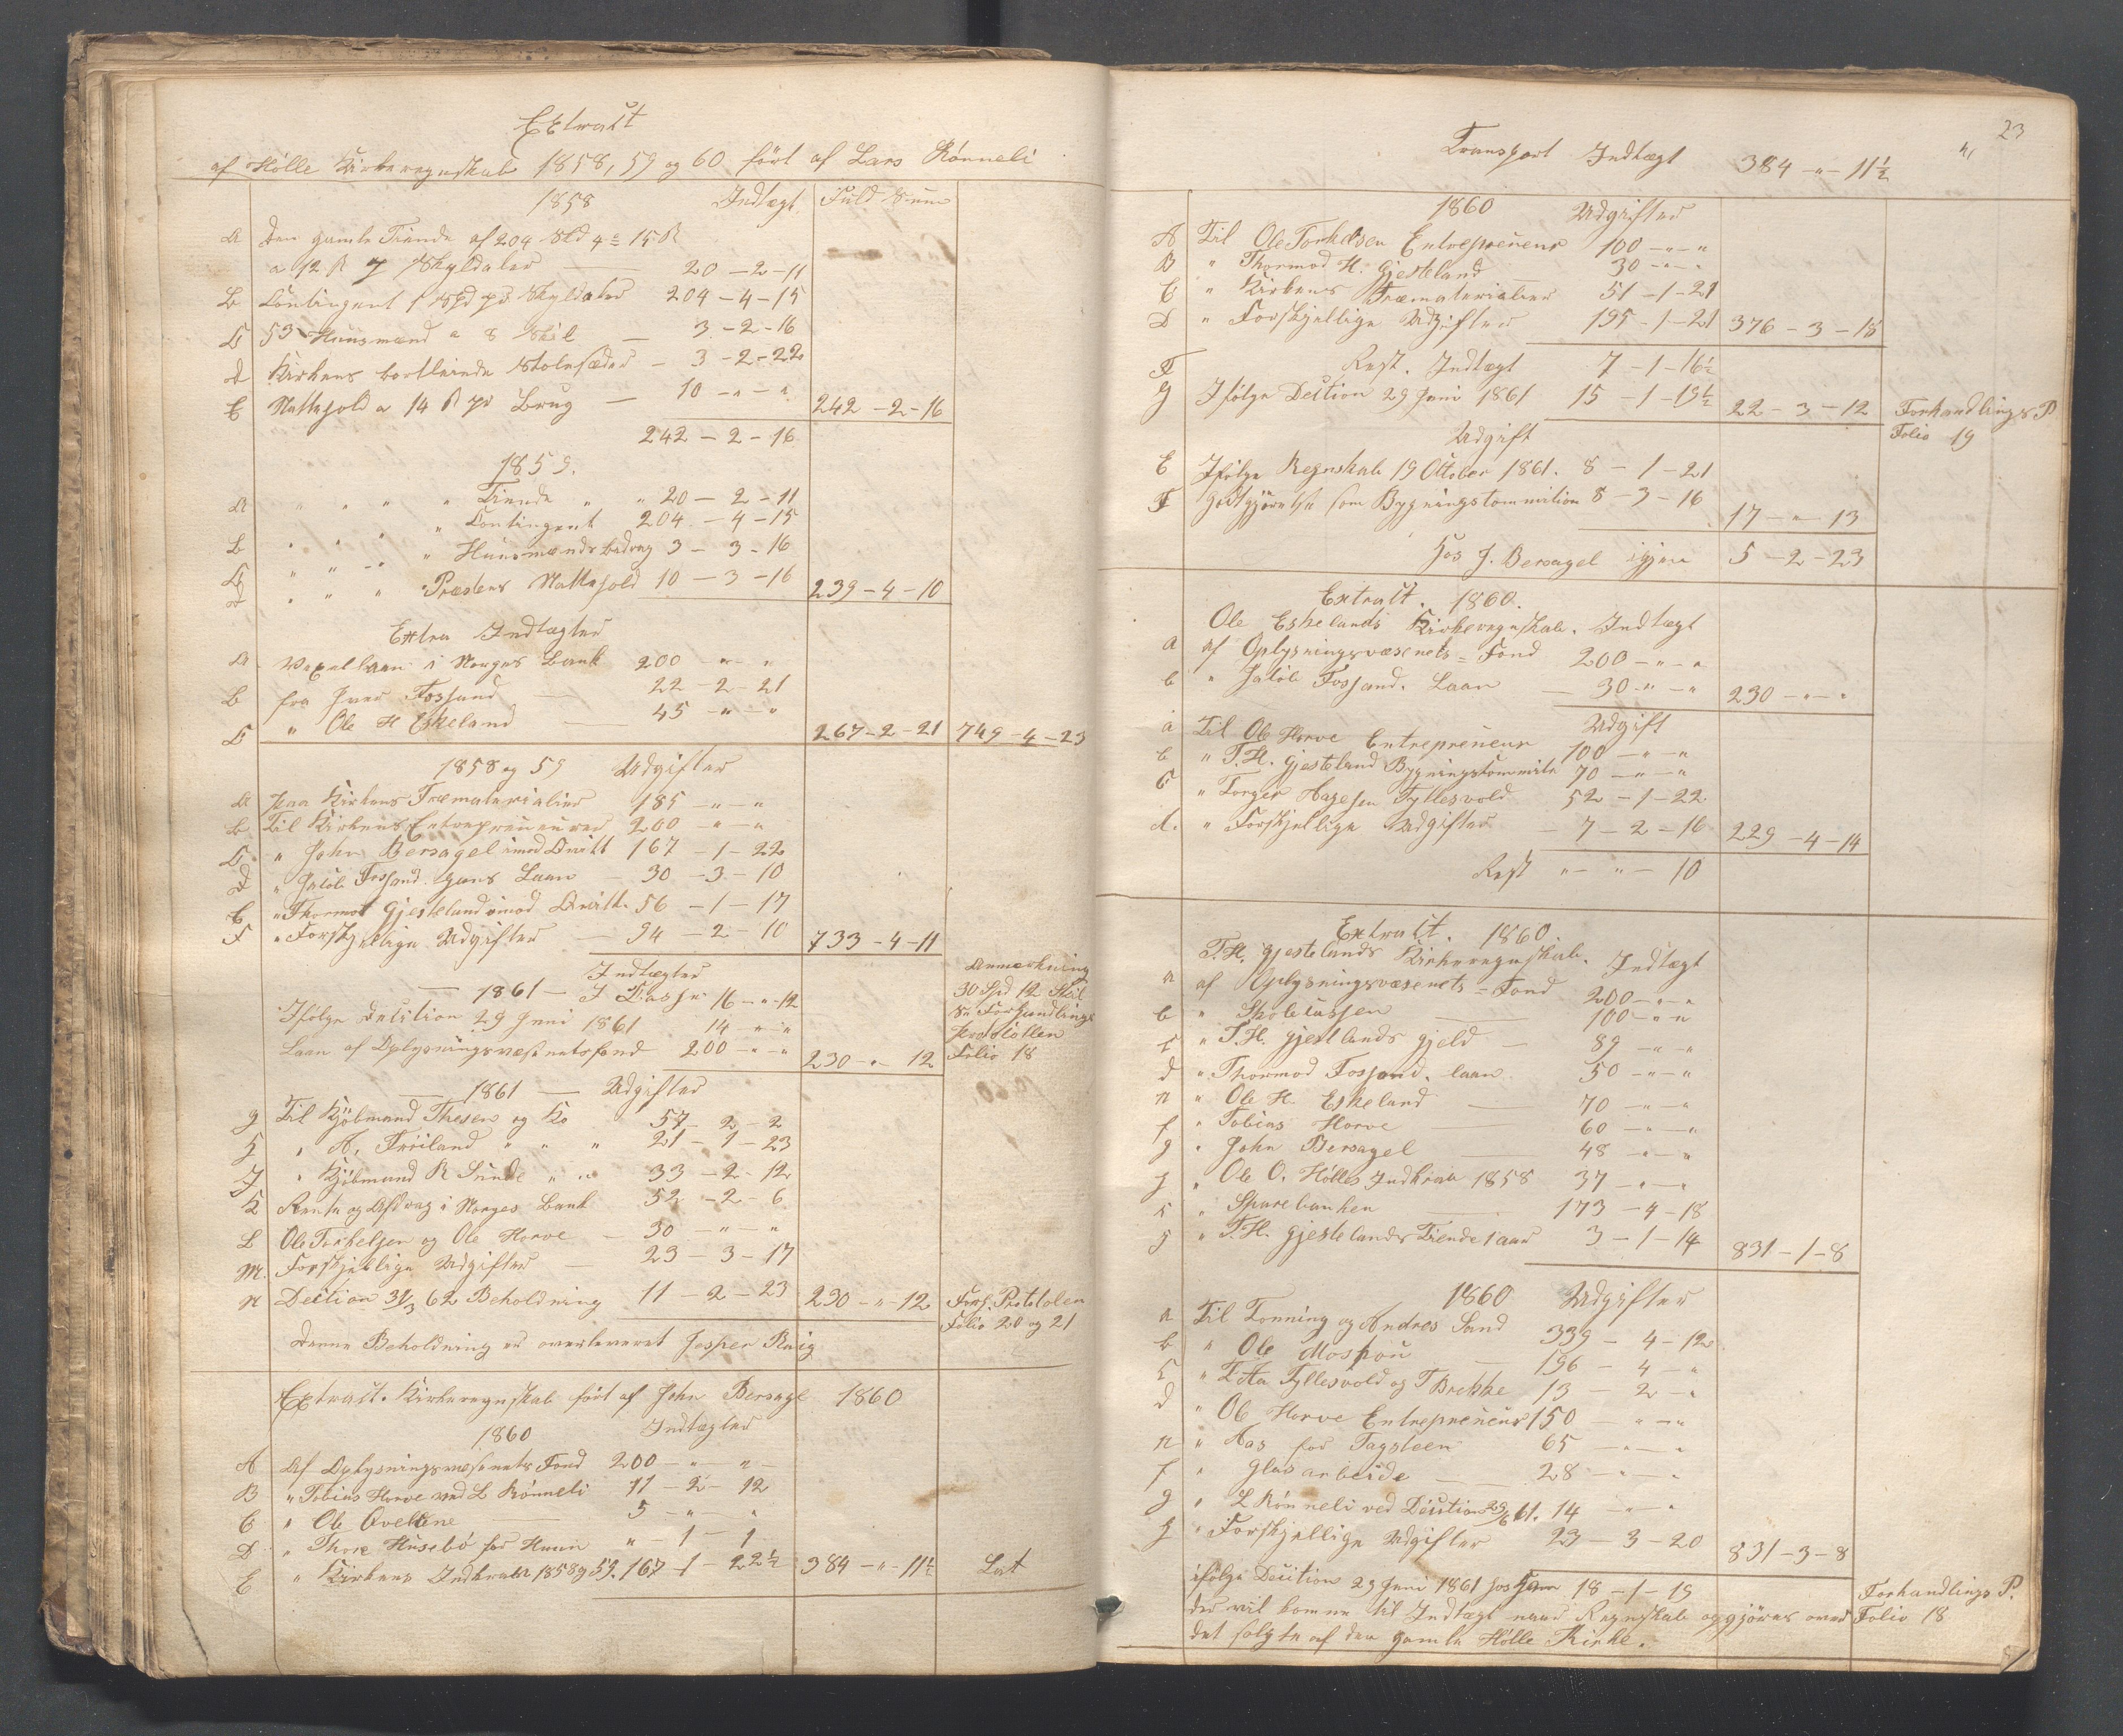 Extract
af Hölle Kirkeregnskab 1858, 59 og 60 fört af Lars Rönneli
1858 Indtægt Fuld Sum
A Den gamle Tiende af 204 Skld 4 15 ß
a 12 ß Skyldaler 20 - 2 - 11
B Contingent 1 Spd pr Skyldaler 204 - 4 - 15
C 53 Huusmænd a 8 Skil 3 - 2 - 16
D Kirkens bortleiede Stolesæder 3 - 2 - 22
E Nattehold a 14 ß pr Brug 10 - " - " 242 - 2 - 16
242 - 2 - 16
1859.
A " " " " Tiende " " 20 - 2 - 11
B " " " " Contingent 204 - 4 - 15
C " " " " Huusmænds bedrag 3 - 3 - 16
D " " " Præstens Nattehold 10 - 3 - 16 239 - 4 - 10
Extra Indtægter
A Vexellaan i Norges Bank 200 - " - "
B fra Iver Fossand 22 - 2 - 21
C " Ole H Eskeland 45 - " - " 267 - 2 - 21 749 - 4 - 23
1858 og 59 Udgifter
A Paa Kirkens Træmaterialier 185 - " - "
B Til Kirkens Entrepreneurer 200 - " - "
C " John Bersagel imod Qvitt 167 - 1 - 22
D " Jakob Fossand hans Laan 30 - 3 - 10
E " Thormod Gjesteland imod Qvitt. 56 - 1 - 17
F " Forskjellige Udgifter 94 - 2 - 10 733 - 4 - 11
Indtægter
1861 - I Cassa 16 - " - 12
Ifölge Decition 29 Juni 1861 14 " "
Laan af Oplysningsvæsenetsfond 200 - " - " 230 - " - 12
Anmærkning
30 Spd 12 Skil
Se Forhandlings
Protocollen
Folio 18
1861 Udgifter
G Til Kjöbmand Thesen og Ko 57 - 2 - 2
H " A. Tröiland " " " 21 - 1 - 23
I " Kjöbmand R Sunde " " 33 - 2 - 12
K Rente og Afdrag i Norges Bank 52 - 2 - 6
L Ole Torkelsen og Ole Horve 30 - " - "
M. Forskjellige Udgifter 23 - 3 - 17
N Decition 31/3 62 Beholdning 11 - 2 - 23 230 - " - 12 Forh. Protokolen
Folio 20 og 21
Denne Beholdning er overleveret Jesper
Extract. Kirkeregnskab fört af John Bersagel 1860
1860 Indtægter
A Af Oplysningsvæsenets Fond 200 - " - " -
B " Tobias Horve ved L Rönneli 11 - 2 - 12
C " Ole Qvelene 5 - " - "
D " Thore Husebö for Huun " - 1 - 1
E " Kirkens Indkræv 1858 og 59. 167 - 1 - 22½ 384 - " - 11½ Lat
23
Transport Indtægt 384 - " - 11½
1860 Udgifter
A Til Ole Torkelsen Entrepreneur 100 - " - "
B " Thormod H. Gjesteland 30 - " - "
C " Kirkens Træmaterialier 51 - 1 - 21
D " Forskjellige Udgifter 195 - 1 - 21 376 - 3 - 18
F Rest. Indtægt 7 - 1 - 16½
G Ifölge Decition 29 Juni 1861 15 - 1 - 19½ 22 - 3 - 12 Forhandlings P
Folio 19
Udgift
E Ifölge Regnskab 19 October 1861. 8 - 1 - 21
F Godtgjörelse som Bygningscommition 8 - 3 - 16 17 - " - 13
Hos J. Bersagel igjen 5 - 2 - 23
Extract. 1860.
Ole Eskelands Kirkeregnskab. Indtægt
a af Oplysningsvæsenets = Fond 200 - " - "
b " Jakob Fossand. Laan 30 - " - " 230 - " - "
Udgift
a Til Ole Horve Entrepreneur 100 - " - "
b " T. H. Gjesteland Bygningscommite 70 - " - "
c " Torger Aagesen Tyllesvold 52 - 1 - 22
d. " Forskjellige Udgifter - 7 - 2 - 16 229 - 4 - 14
Rest " - " - 10
Extract. 1860.
T. H. Gjestelands Kirkeregnskab. Indtægt
a af Oplysningsvæsenets = Fond 200 - " - "
b " Skolecassen 100 - " - "
c " T. H. Gjestlands gjeld 89 - " - "
d " Thormod Fossand. laan 50 - " - "
e " Ole H. Eskeland 70 - " - "
f " Tobias Horve 60 - " - "
g " John Bersagel 48 - " - "
h " Ole O. Hölles Indkræv 1858 37 - " - "
" Sparebanken 173 - 4 - 18
" T. H. Gjestelands Tiende 1 aar 3 - 1 - 14 831 - 1 - 8
1860 Udgifter
a Til Tonning og Andres Sand 339 - 4 - 12
b " Ole Moshou 196 - 4 - "
c " T Aa Tyllesvold og T Brekke 13 - 2 - "
d " Ole Horve Entrepreneur 150 - " - "
e " Aas for Tagsteen 65 - " - "
f " Glasarbeide 28 - " - "
g " L Rönneli ved Decition 29/6 61. 14 - " - "
h " Forskjellige Udgifter 23 - 3 - 20 831 - 3 - 8
ifölge Decition 29 Juni 1861 hos ham 18 - 1 - 19 Forhandlings P.
der vil komme til Indtægt naar Regnskab opgjöres over Folio 18
det solgte af den gamle Hölle Kirke.